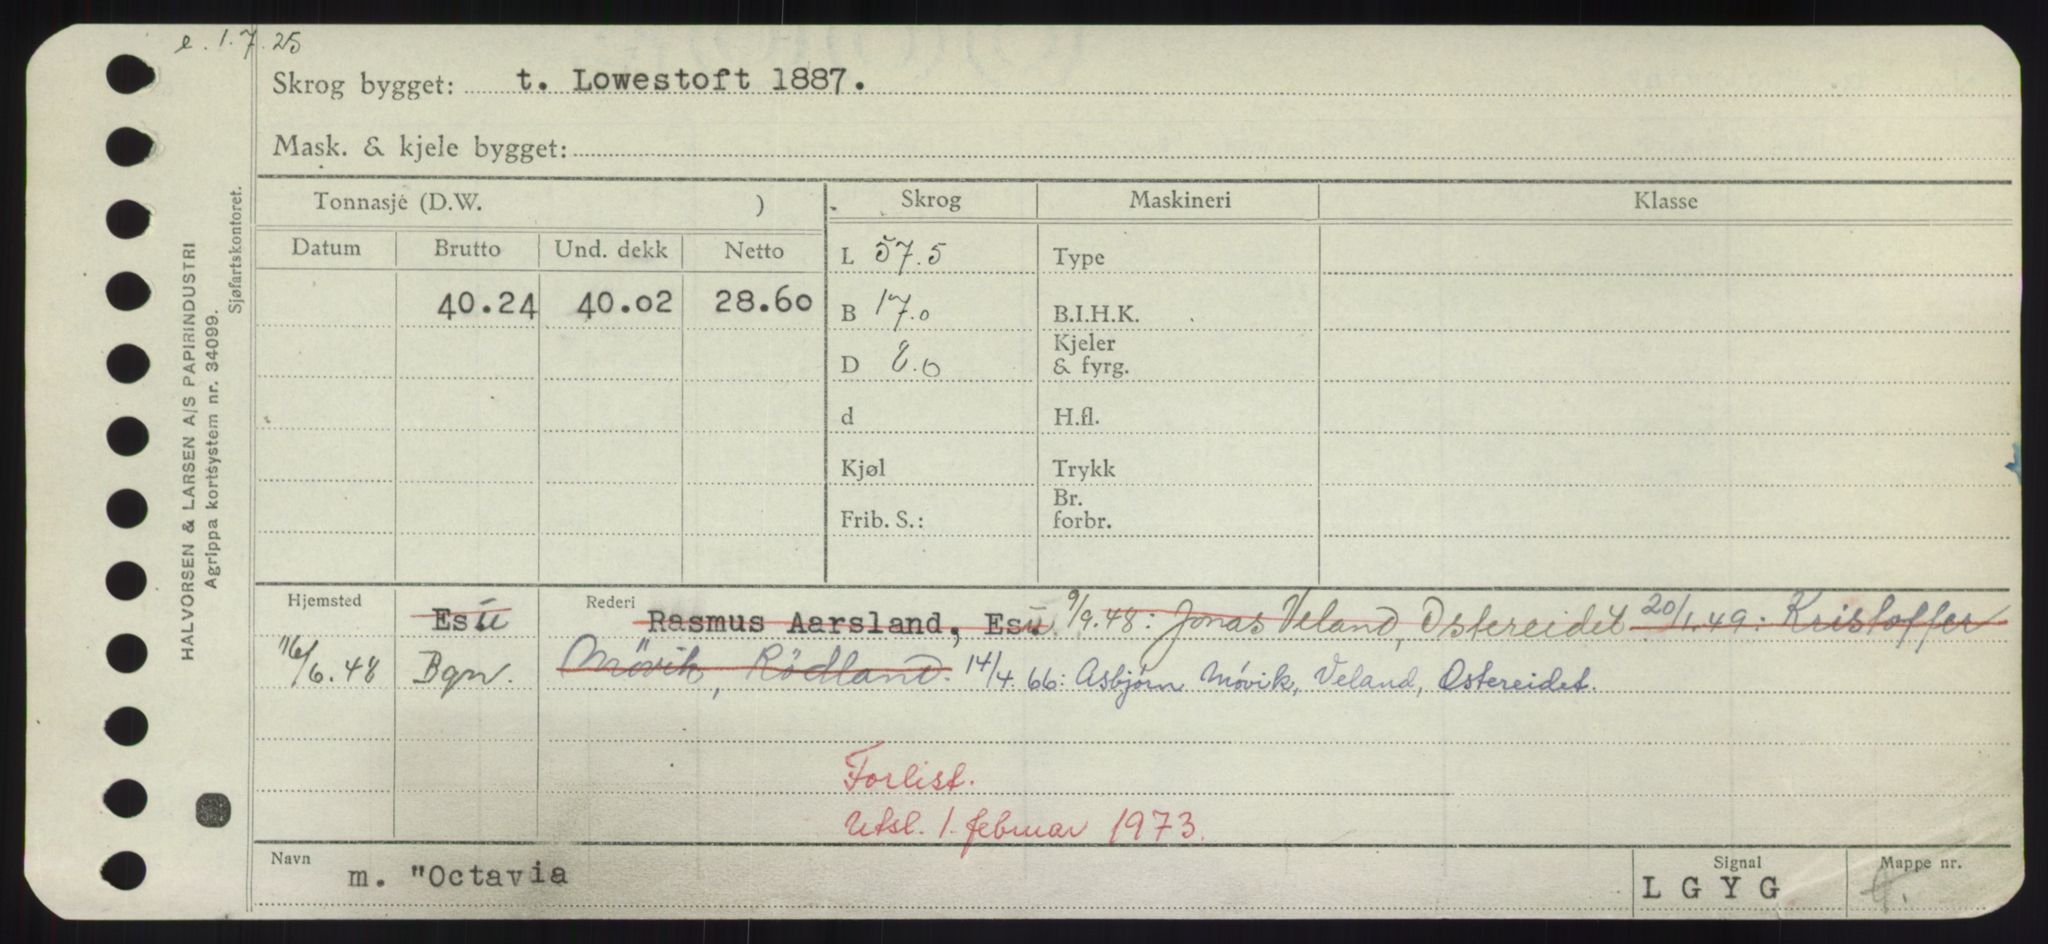 e. 1.7.25
Skrog bygget: t. Lowestoft 1887.
Mask. & kjele bygget:
Tonnasje (D.W. )
Skrog Maskineri Klasse
Datum Brutto Und. dekk Netto
L 57.5 Type
40.24 40.02 28.60
B 17.0 B.I.H.K.
D 8.0 Kjeler & fyrg.
d H.fl.
Kjøl Trykk
Frib. S.: Br. forbr.
Hjemsted Esü Rederi Rasmus Aarsland, Esü. 9/9.48: Jonas Veland, Ostereidet 20/1.49: Kristoffer
16/6.48 Bgn. Mövik, Rödland. 14/4.66: Asbjørn Møvik, Veland, Ostereidet.
Forlist.
Utsl. 1. februar 1973.
Navn m. "Octavia Signal L G Y G Mappe nr. 4.
HALVORSEN & LARSEN A/S PAPIRINDUSTRI
Agrippa kortsystem nr. 34099.
Sjøfartskontoret.